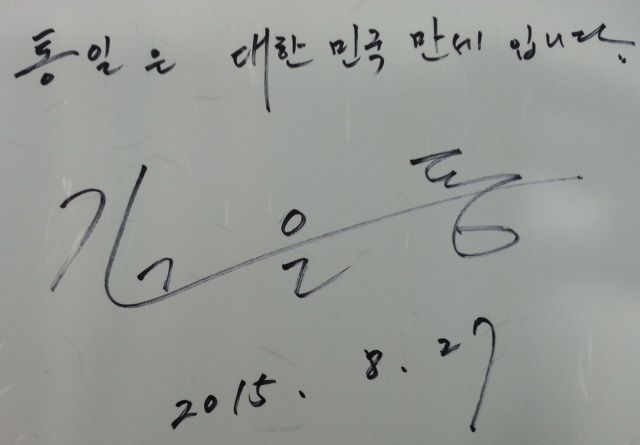 통일은 대한민국 만세 입니다.
김을동
2015. 8. 27